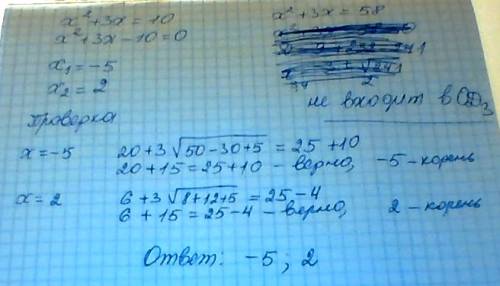 x² + 3x = 10
x² + 3x - 10 = 0
x₁ = -5
x₂ = 2
x² + 3x = 58
не входит в ОДЗ
Проверка
x = -5 20 + 3√(50 - 30 + 5) = 25 + 10
20 + 15 = 25 + 10 - верно, -5 - корень
x = 2 6 + 3√(8 + 12 + 5) = 25 - 4
6 + 15 = 25 - 4 - верно, 2 - корень
Ответ: -5 ; 2